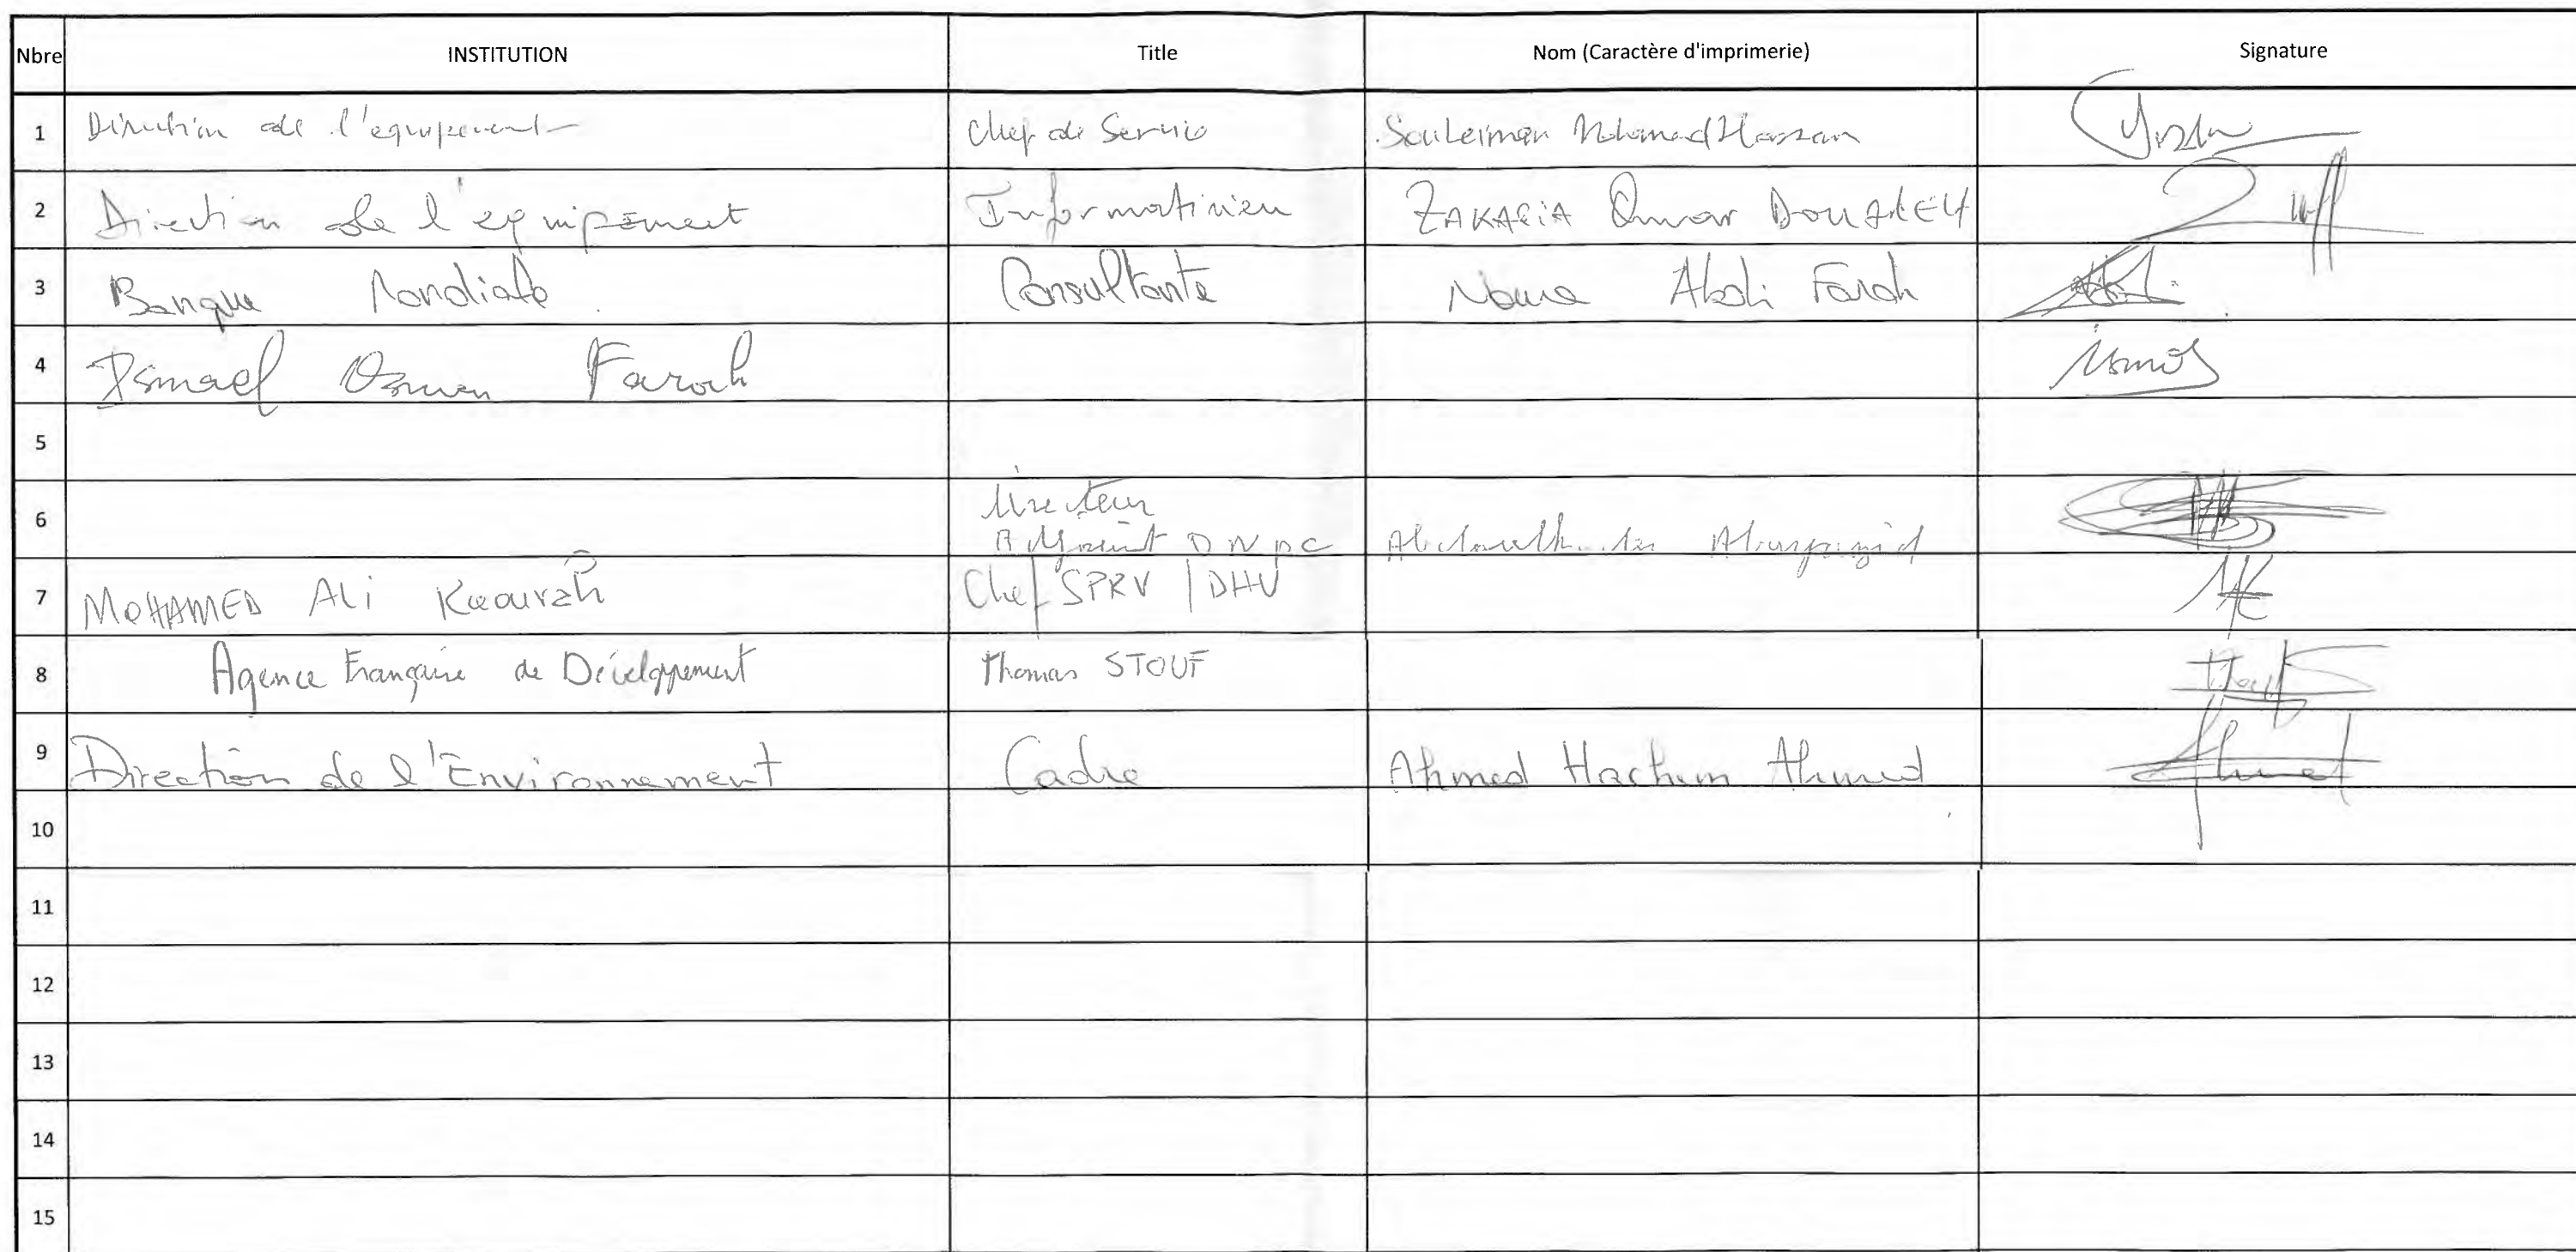 Nbre INSTITUTION Title Nom (Caractère d'imprimerie) Signature
1 Direction de l'equipement Chef de Service Souleiman Mohamed Hassan
2 Direction de l'equipement Informaticien ZAKARIA Omar
3 Banque Mondiale Consultante Abdi Farah
4 Ismael Osman Farah
5
6 Directeur
Adjoint
7 MOHAMED Ali Chef SPRV / DHU
8 Agence Française de Développement Thomas STOUF
9 Direction de l'Environnement Cadre Ahmed Hachim Ahmed
10
11
12
13
14
15